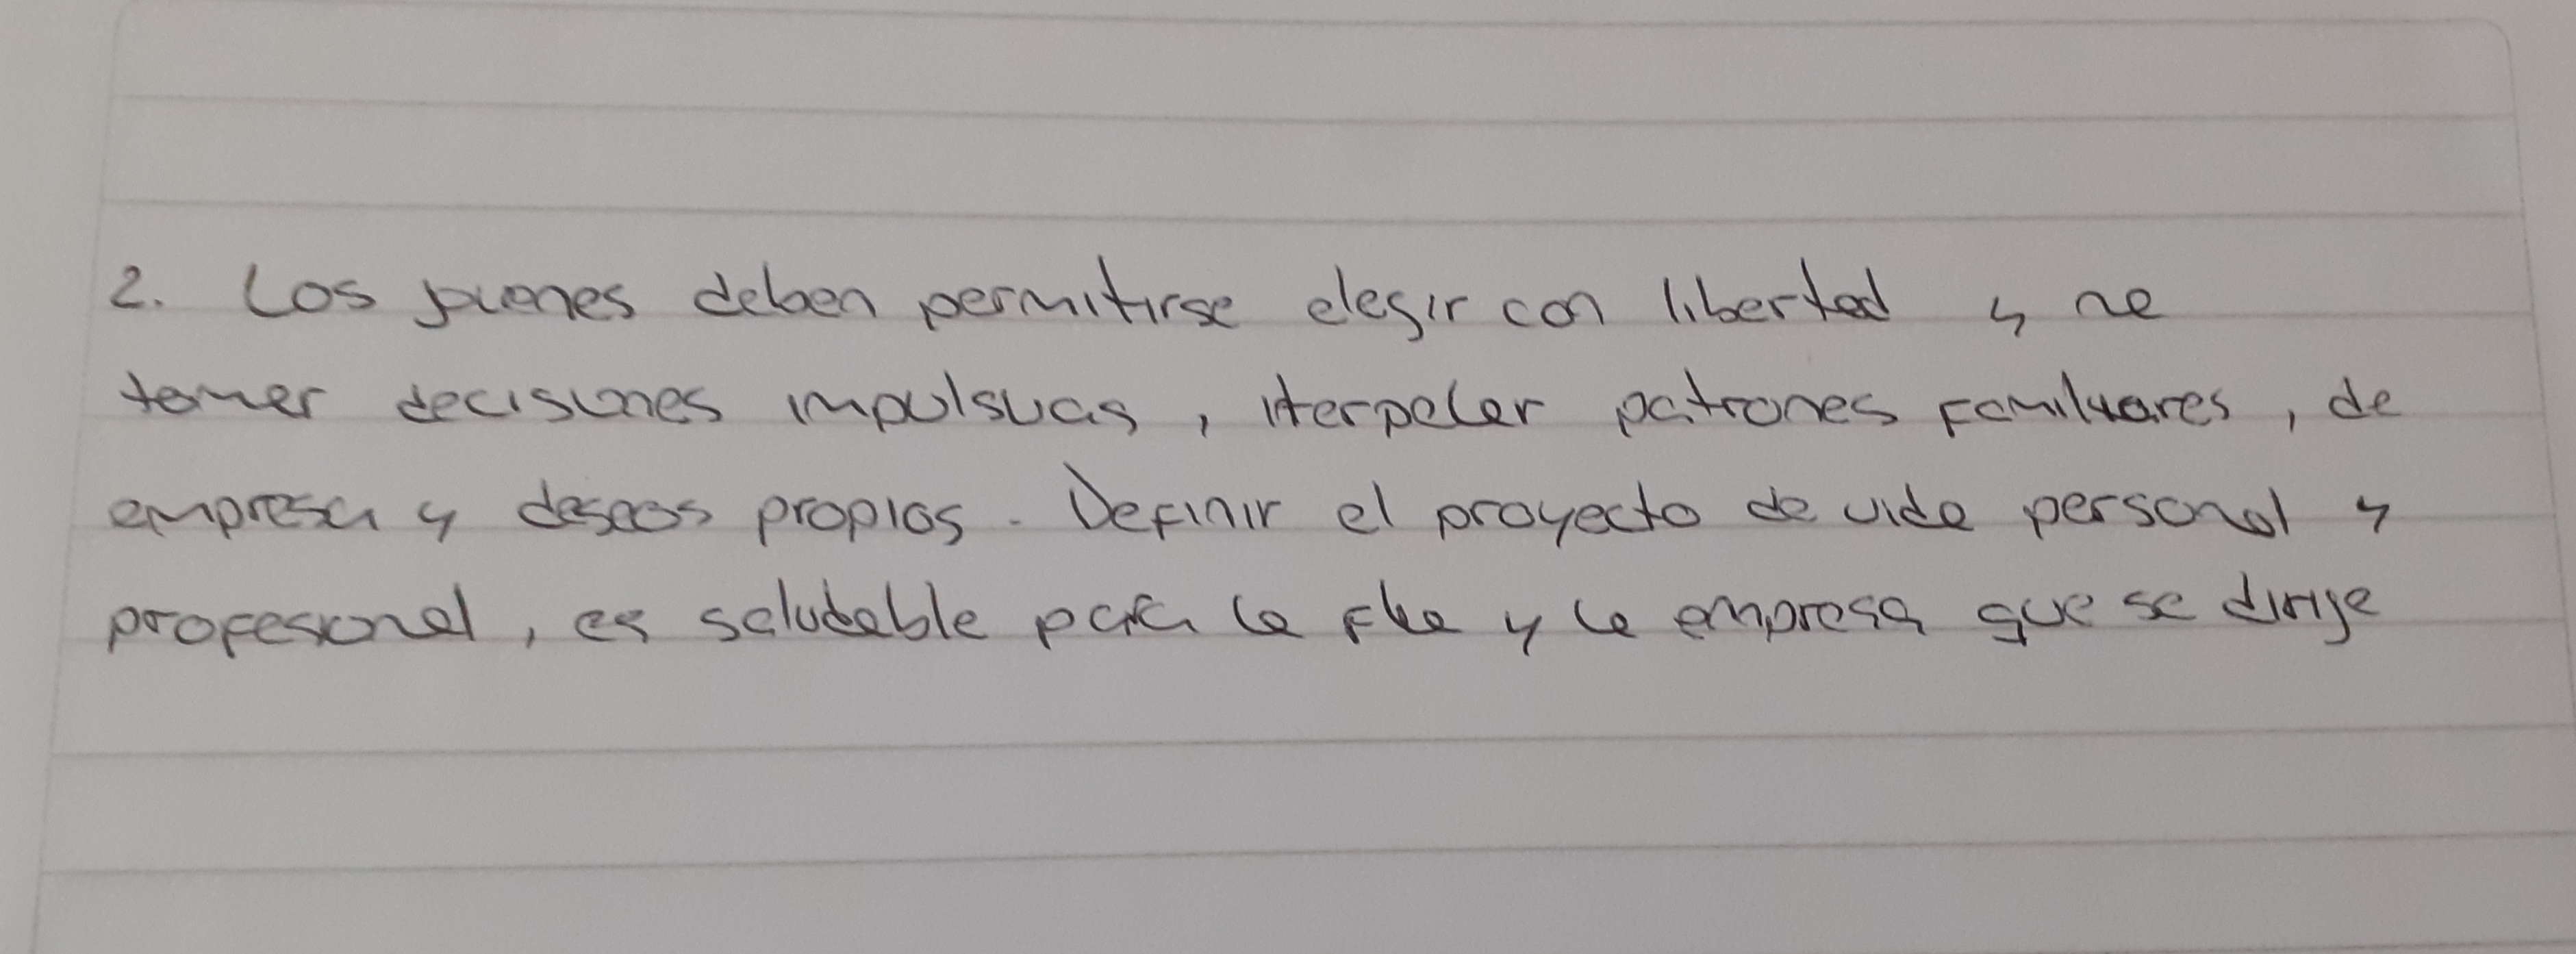 2. Los jovenes deben permitirse elegir con libertad y no
tomar decisiones impulsivas, iterpelar patrones familiares, de
empresa y deseos propios. Definir el proyecto de vida personal y
profesional, es saludable para la flia y la empresa que se dirije